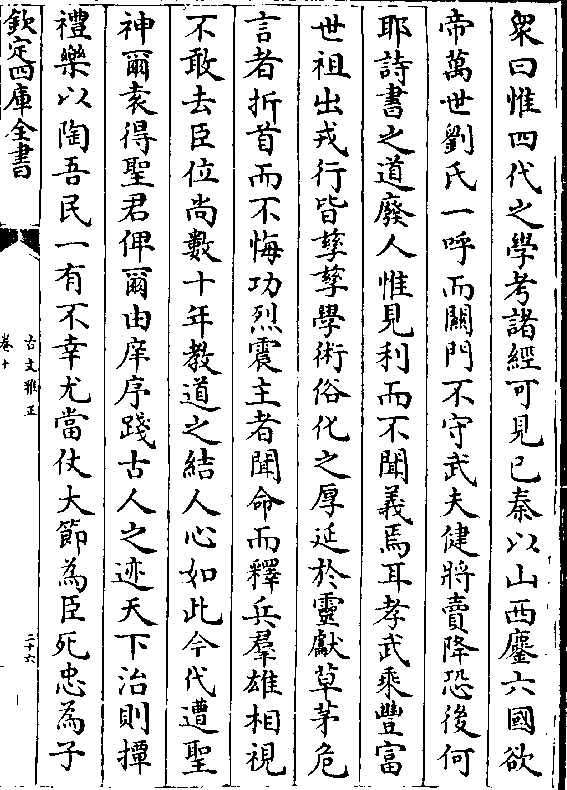 衆曰惟四代之學考諸經可見已秦以山西鏖六國欲
帝萬世劉氏一呼而關門不守武夫健將賣降恐後何
耶詩書之道廢人惟見利而不聞義焉耳孝武乘豐富
世祖出戎行皆孳孳學術俗化之厚延於靈獻草茅危
言者折首而不悔功烈震主者聞命而釋兵羣雄相視
不敢去臣位尚數十年教道之結人心如此今代遭聖
神爾袁得聖君俾爾由庠序踐古人之迹天下治則撢
禮樂以陶吾民一有不幸尤當仗大節為臣死忠為子
欽定四庫全書
古文雅正
卷十
二十六